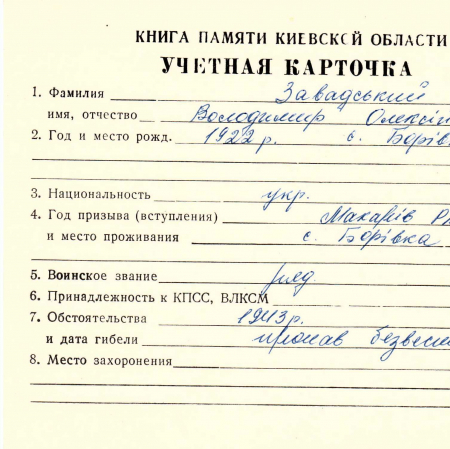 КНИГА ПАМЯТИ КИЕВСКОЙ ОБЛАСТИ
УЧЕТНАЯ КАРТОЧКА
1. Фамилия Завадський
имя, отчество Володимир Олексі
2. Год и место рожд. 1922 р. с. Борів
3. Национальность укр.
4. Год призыва (вступления) Макарів Р
и место проживания с. Борівка
5. Воинское звание ряд
6. Принадлежность к КПСС, ВЛКСМ
7. Обстоятельства 1943 р.
и дата гибели пропав безвес
8. Место захоронения